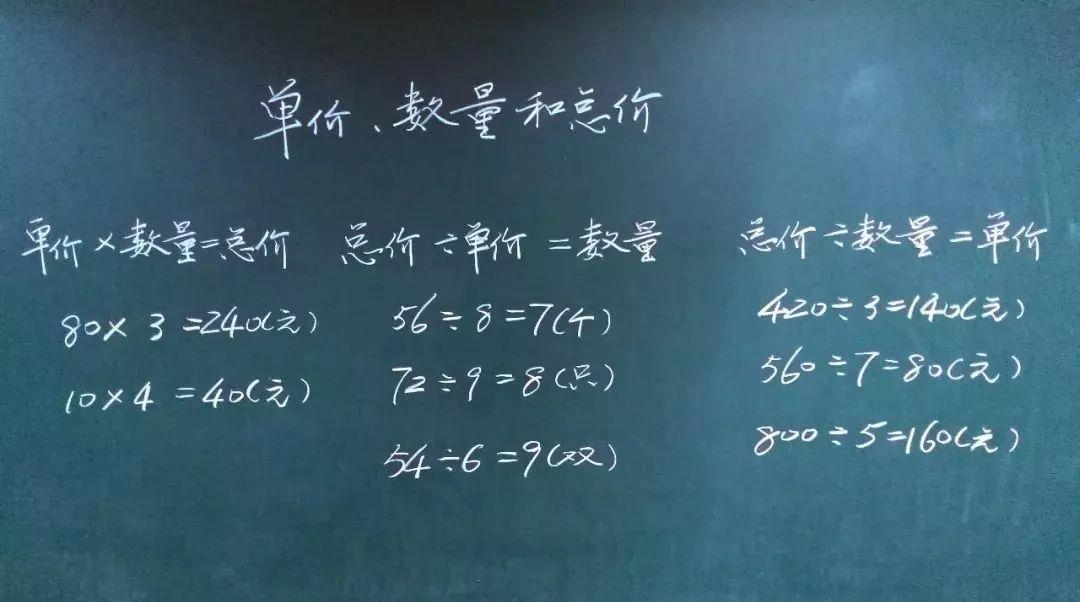 单价、数量和总价
单价×数量=总价
80×3=240(元)
10×4=40(元)
总价÷单价=数量
56÷8=7(个)
72÷9=8(只)
54÷6=9(双)
总价÷数量=单价
420÷3=140(元)
560÷7=80(元)
800÷5=160(元)